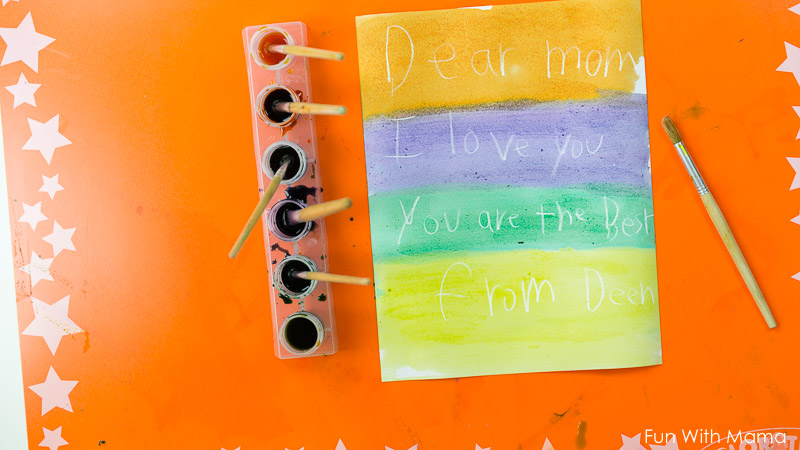 Dear mom
I love you
You are the Best
from Deen
Fun With Mama